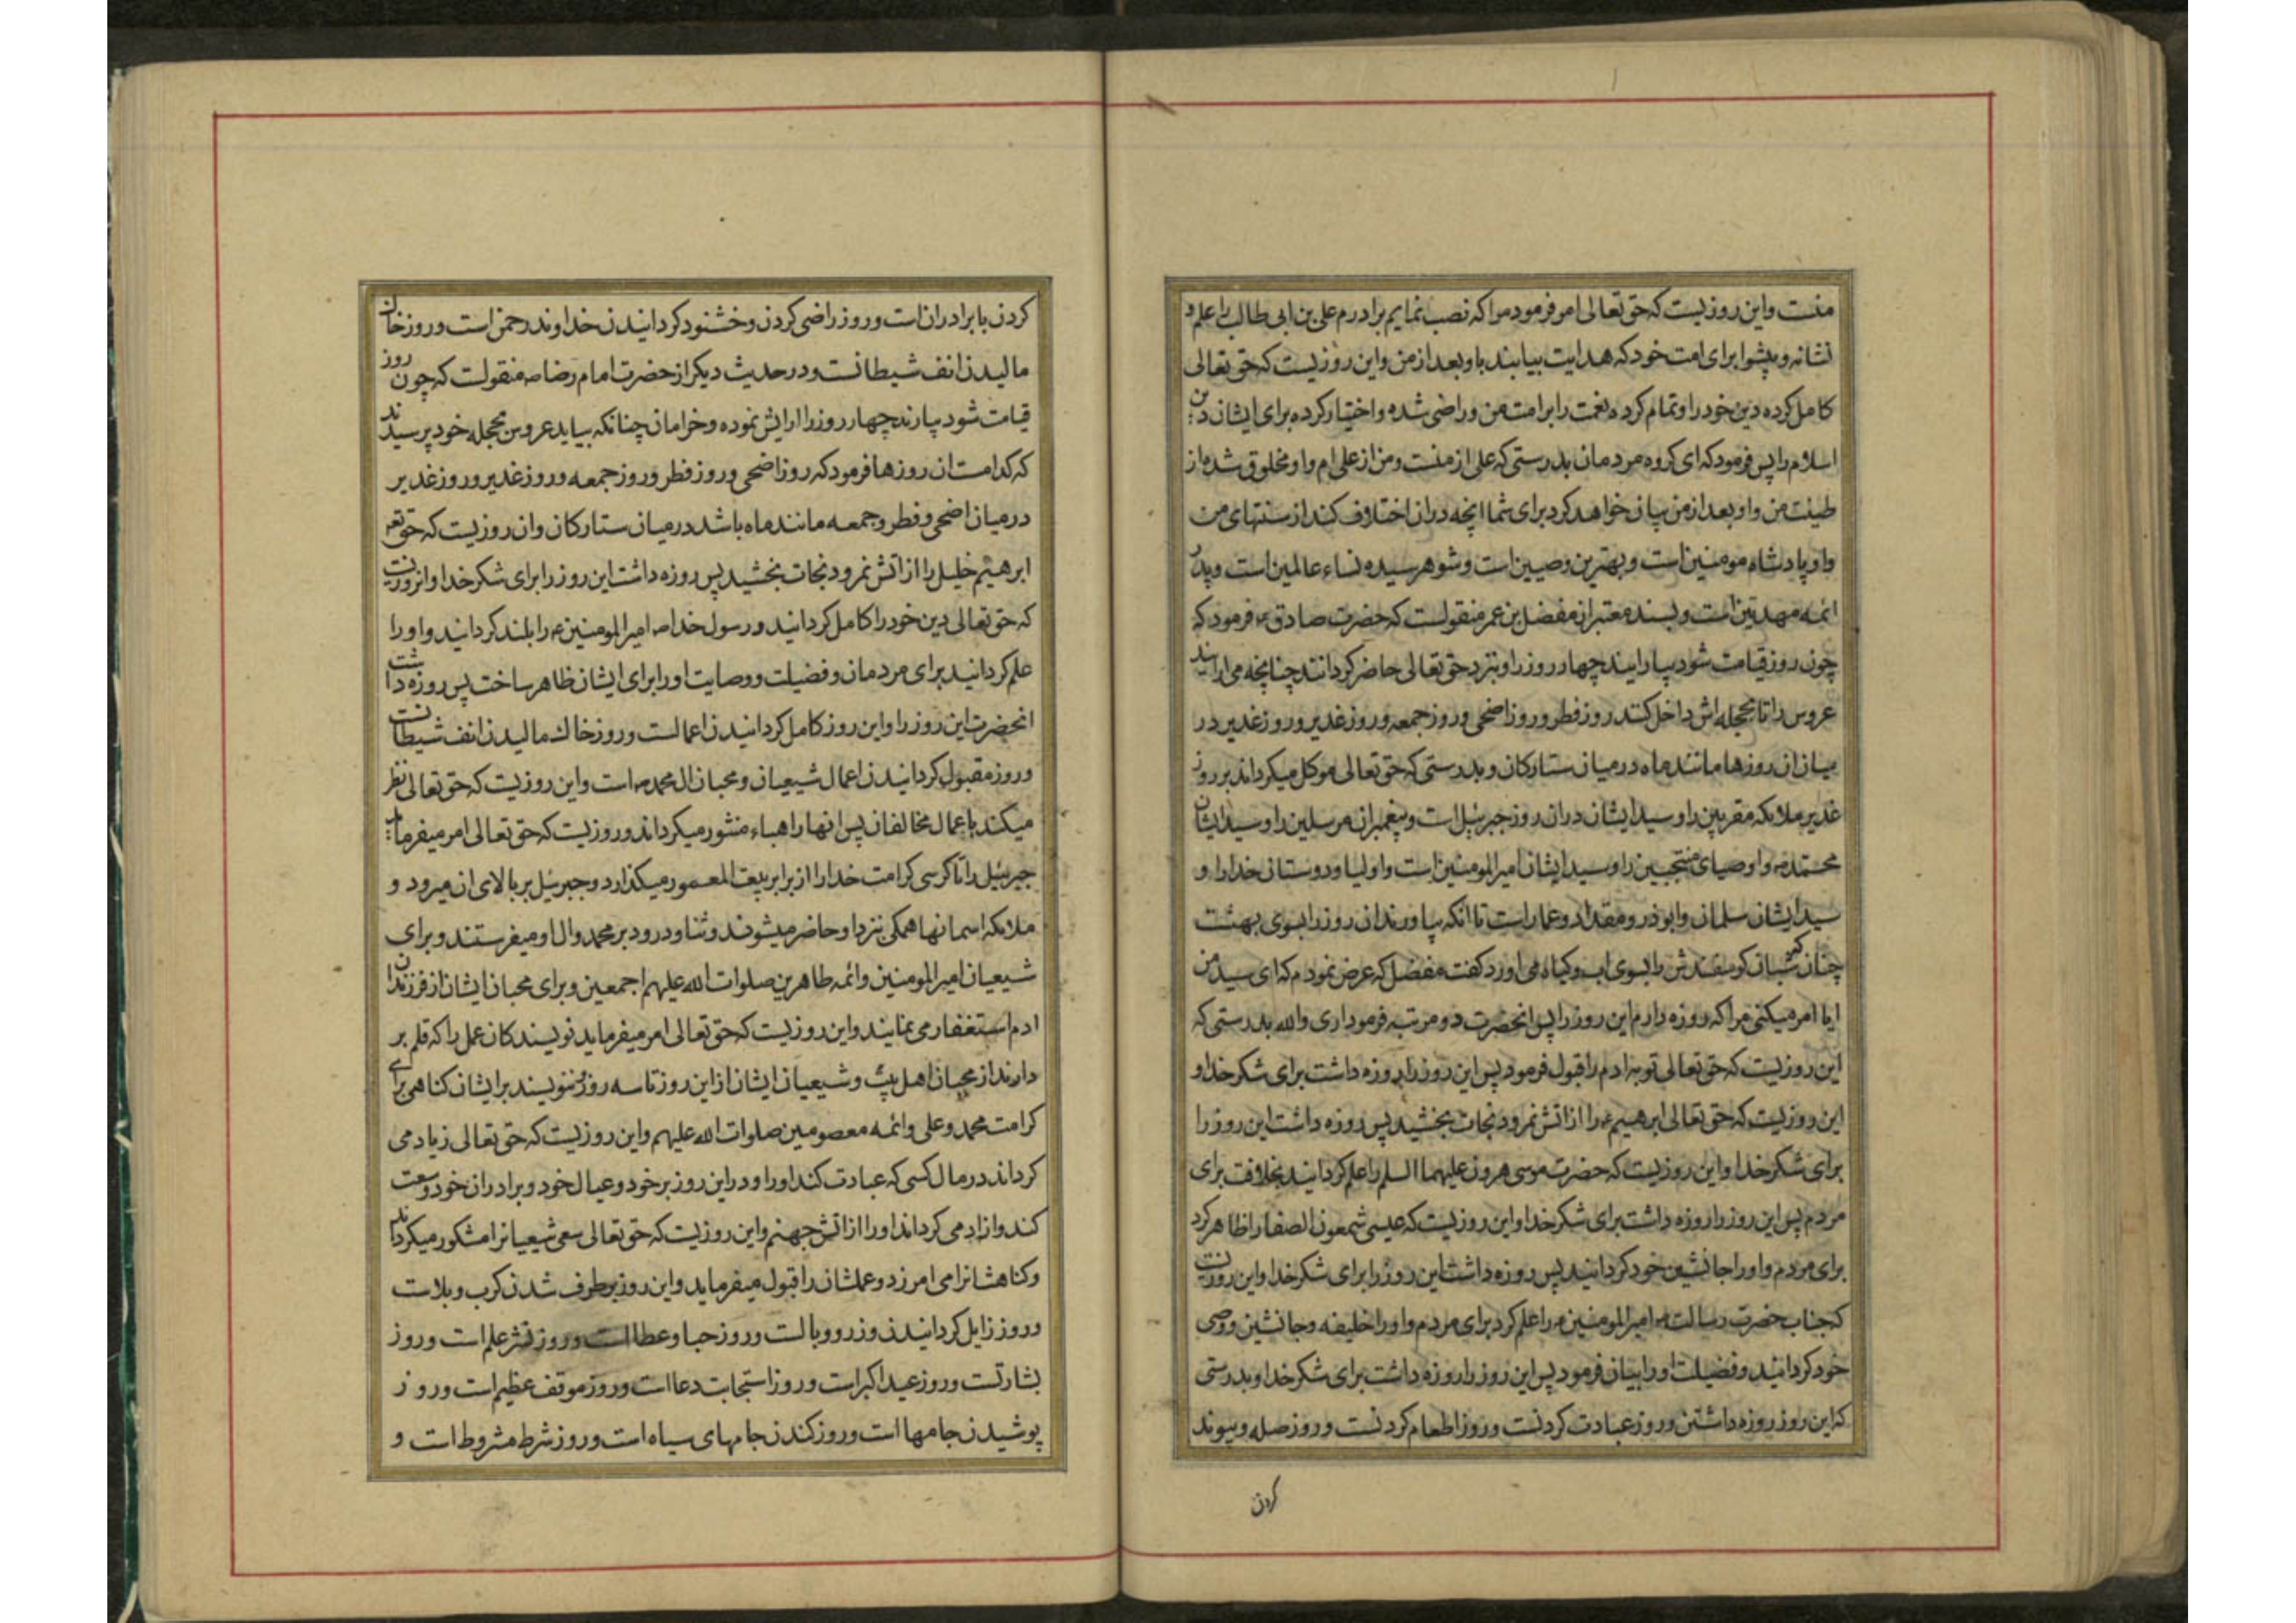 منست واین روزیست که حق تعالی امر فرمود مرا که نصب نمایم برادرم علی بن ابی طالب را علم و
نشانه و پیشوا برای امت خود که هدایت بیابند باو بعد از من واین روزیست که حق تعالی
کامل کرده دین خود را و تمام کرده نعمت را بر امت من و راضی شده و اختیار کرده برای ایشان دین
اسلام را پس فرمود که ای کروه مردمان بدرستی که علی از منست و من از علی ام و او مخلوق شده از
طینت من و او بعد از من بیان خواهد کرد برای شما انچه دران اختلاف کنند از سنتهای من
و او پادشاه مومنین است و بهترین وصیین است و شوهر سیده نساء عالمین است و پدر
ائمه مهدیین است و بسند معتبر از مفضل بن عمر منقولست که حضرت صادق ع فرمود که
چون روز قیامت شود بیارایند چهار روز را و بنزد حق تعالی حاضر کردانند چنانچه می ارایند
عروس را تا بحجله اش داخل کنند روز فطر و روز اضحی و روز جمعه و روز غدیر و روز غدیر در
میان ان روزها مانند ماه در میان ستارکان و بدرستی که حق تعالی موکل میکرداند بر روز
غدیر ملائکه مقربین را و سید ایشان دران روز جبرئیل است و پیغمبران مرسلین را و سید ایشان
محمد ص و اوصیای منتجبین را و سید ایشان امیرالمومنین است و اولیا و دوستان خدا را و
سید ایشان سلمان و ابوذر و مقداد و عمار است تا انکه بیاورند ان روز را بسوی بهشت
چنان که شبان کوسفندش را بسوی اب و کیاه می اورد کفت مفضل که عرض نمودم که ای سید من
ایا امر میکنی مرا که روزه دارم این روز را پس انحضرت دو مرتبه فرمود اری والله بدرستی که
این روزیست که حق تعالی توبه ادم را قبول فرمود پس این روز را روزه داشت برای شکر خدا و
این روزیست که حق تعالی ابرهیم ع را از اتش نمرود نجات بخشید پس روزه داشت این روز را
برای شکر خدا و این روزیست که حضرت موسی هرون علیهما السلم را علم کردانید بخلافت برای
مردم پس این روز را روزه داشت برای شکر خدا و این روزیست که عیسی شمعون الصفا را ظاهر کرد
برای مردم و او را جانشین خود کردانید پس روزه داشت این روز را برای شکر خدا و این روزیست
که جناب حضرت رسالت ص امیرالمومنین ع را علم کرد برای مردم و او را خلیفه و جانشین و وصی
خود کردانید و فضیلت او را بیان فرمود پس این روز را روزه داشت برای شکر خدا و بدرستی
که این روز روزه داشتن و روز عبادت کردنست و روز اطعام کردنست و روز صله و پیوند
کردن
کردن با برادران است و روز راضی کردن و خشنود کردانیدن خداوند رحمن است و روز خاک
مالیدن انف شیطانست و در حدیث دیکر از حضرت امام رضا ص منقولست که چون روز
قیامت شود بیارند چهار روز را ارایش نموده و خرامان چنانکه بیاید عروس بحجله خود پرسیدند
که کدامست ان روزها فرمود که روز اضحی و روز فطر و روز جمعه و روز غدیر و روز غدیر
در میان اضحی و فطر و جمعه مانند ماه باشد در میان ستارکان و ان روزیست که حق تع
ابرهیم خلیل را از اتش نمرود نجات بخشید پس روزه داشت این روز را برای شکر خدا و انروزیست
که حق تعالی دین خود را کامل کردانید و رسول خدا ص امیرالمومنین ع را بلند کردانید و او را
علم کردانید برای مردمان و فضیلت و وصایت او را برای ایشان ظاهر ساخت پس روزه داشت
انحضرت این روز را و این روز کامل کردانیدن اعمالست و روز خاک مالیدن انف شیطانست
و روز مقبول کردانیدن اعمال شیعیان و محبان ال محمد ص است و این روزیست که حق تعالی نظر
میکند باعمال مخالفان پس انها را هباء منثور میکرداند و روزیست که حق تعالی امر میفرماید
جبرئیل را تا کرسی کرامت خدا را از برابر بیت المعمور میکذارد و جبرئیل بر بالای ان میرود و
ملائکه اسمانها همکی نزد او حاضر میشوند و ثنا و درود بر محمد و ال او میفرستند و برای
شیعیان امیرالمومنین و ائمه طاهرین صلوات الله علیهم اجمعین و برای محبان ایشان از فرزندان
ادم استغفار می نمایند و این روزیست که حق تعالی امر میفرماید نویسندکان عمل را که قلم بر
دارند از محبان اهل بیت و شیعیان ایشان از این روز تا سه روز ننویسند بر ایشان کناهی برای
کرامت محمد و علی و ائمه معصومین صلوات الله علیهم و این روزیست که حق تعالی زیاد می
کرداند در مال کسی که عبادت کند او را و در این روز بر خود و عیال خود و برادران خود وسعت
کند و ازاد می کرداند او را از اتش جهنم و این روزیست که حق تعالی سعی شیعیانرا مشکور میکرداند
و کناهشانرا می امرزد و عملشان را قبول میفرماید و این روز برطرف شدن کرب و بلاست
و روز زایل کردانیدن وزر و وبالست و روز حبا و عطا است و روز نشر علم است و روز
بشارتست و روز عید اکبر است و روز استجابت دعا است و روز موقف عظیم است و روز
پوشیدن جامها است و روز کندن جامهای سیاه است و روز شرط مشروط است و